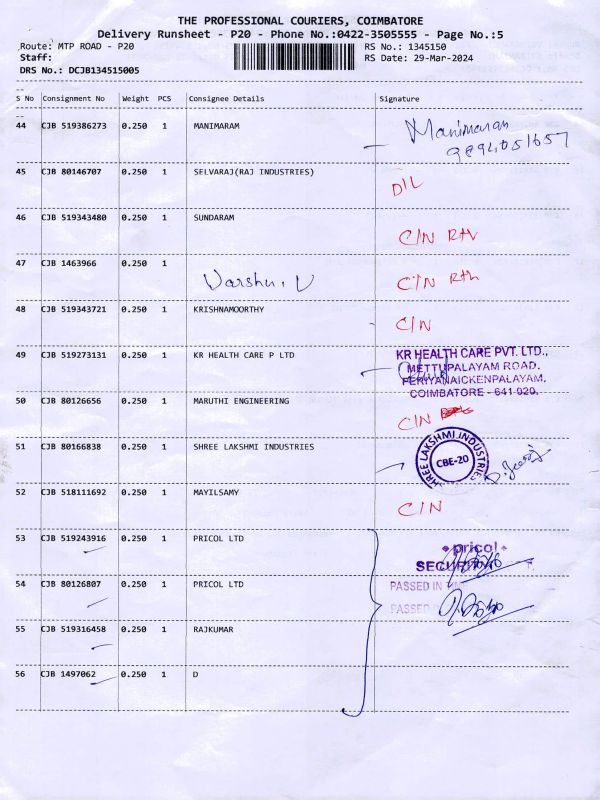 THE PROFESSIONAL COURIERS, COIMBATORE
Delivery Runsheet - P20 - Phone No.:0422-3505555 - Page No.:5
Route: MTP ROAD - P20 RS No.: 1345150
Staff: RS Date: 29-Mar-2024
DRS No.: DCJB134515005
S No Consignment No Weight PCS Consignee Details Signature
44 CJB 519386273 0.250 1 MANIMARAM Manimaran
9894051657
45 CJB 80146707 0.250 1 SELVARAJ(RAJ INDUSTRIES) D/L
46 CJB 519343480 0.250 1 SUNDARAM C/N
47 CJB 1463966 0.250 1 Varshu. V C/N
48 CJB 519343721 0.250 1 KRISHNAMOORTHY C/N
49 CJB 519273131 0.250 1 KR HEALTH CARE P LTD KR HEALTH CARE PVT. LTD.,
METTUPALAYAM ROAD,
PERIYANAICKENPALAYAM,
COIMBATORE - 641 020.
50 CJB 80126656 0.250 1 MARUTHI ENGINEERING C/N
51 CJB 80166838 0.250 1 SHREE LAKSHMI INDUSTRIES SHREE LAKSHMI INDUSTRIES
CBE-20
52 CJB 518111692 0.250 1 MAYILSAMY C/N
53 CJB 519243916 0.250 1 PRICOL LTD pricol
SECURITY
54 CJB 80126807 0.250 1 PRICOL LTD PASSED IN
PASSED
55 CJB 519316458 0.250 1 RAJKUMAR
56 CJB 1497062 0.250 1 D